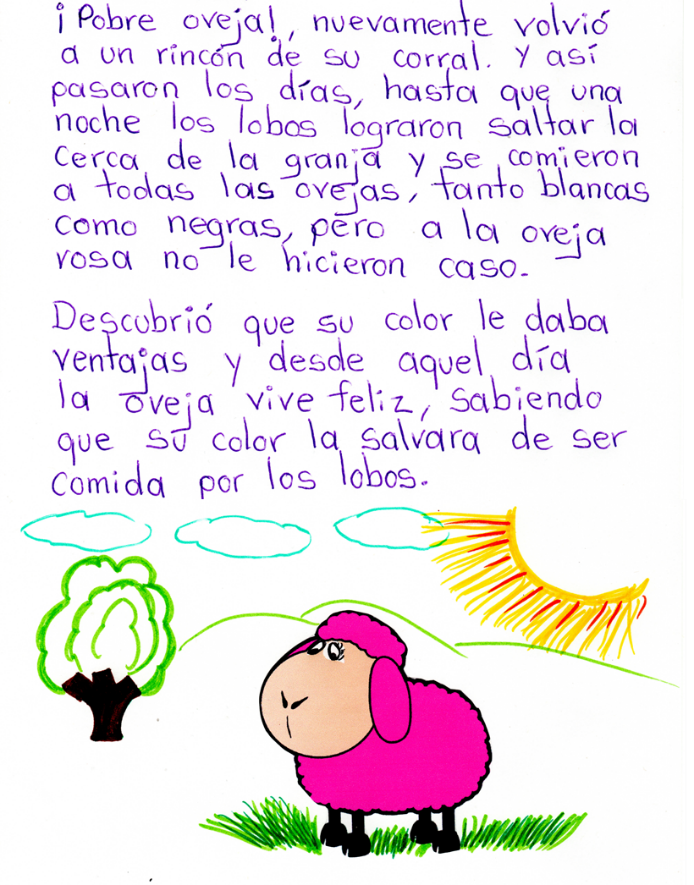 ¡Pobre oveja!, nuevamente volvió
a un rincón de su corral. Y así
pasaron los días, hasta que una
noche los lobos lograron saltar la
cerca de la granja y se comieron
a todas las ovejas, tanto blancas
como negras, pero a la oveja
rosa no le hicieron caso.
Descubrió que su color le daba
ventajas y desde aquel día
la oveja vive feliz, sabiendo
que su color la salvara de ser
comida por los lobos.